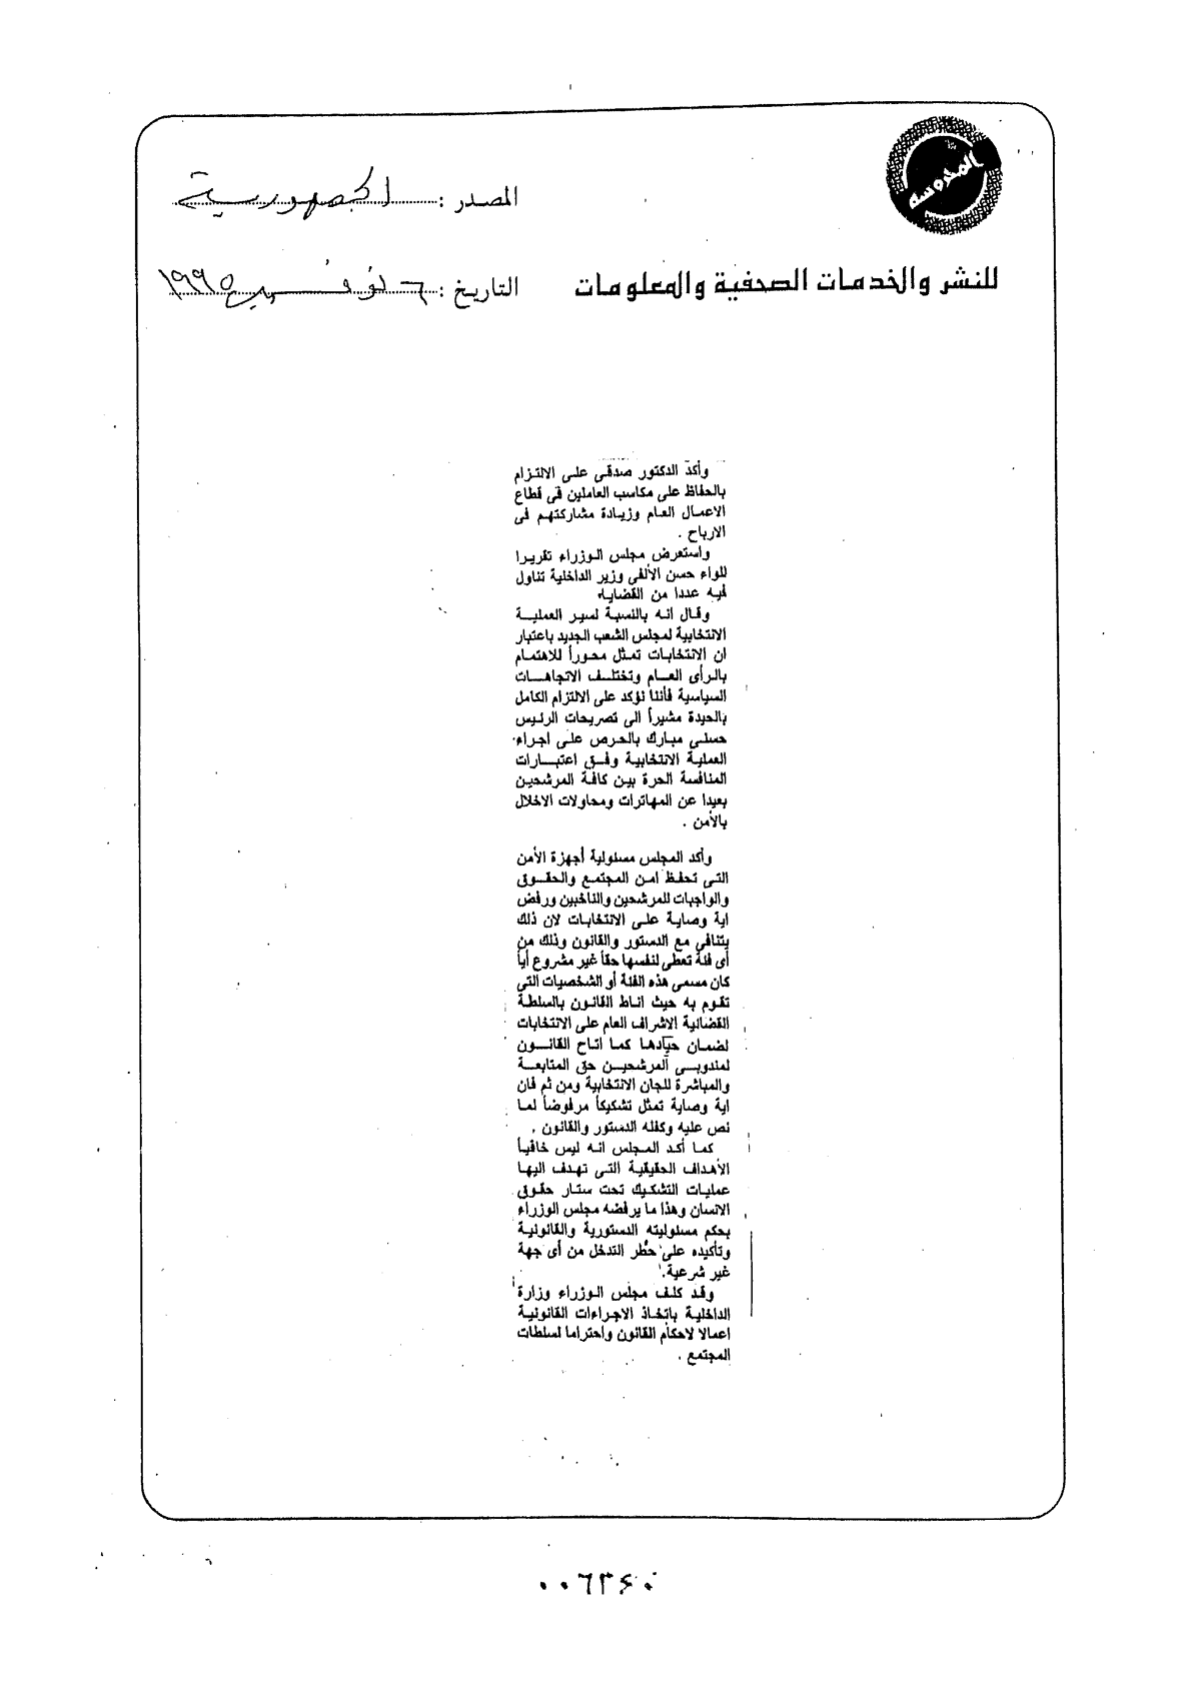 المحروسة
المصدر : الجمهورية
للنشر والخدمات الصحفية والمعلومات
التاريخ : ٦ نوفمبر ١٩٩٥
وأكد الدكتور صدقى على الالتزام
بالحفاظ على مكاسب العاملين فى قطاع
الاعمال العام وزيادة مشاركتهم فى
الارباح .
واستعرض مجلس الوزراء تقريرا
للواء حسن الألفى وزير الداخلية تناول
فيه عددا من القضايا.
وقال انه بالنسبة لسير العملية
الانتخابية لمجلس الشعب الجديد باعتبار
ان الانتخابات تمثل محوراً للاهتمام
بالرأى العام وتختلف الاتجاهات
السياسية فأننا نؤكد على الالتزام الكامل
بالحيدة مشيراً الى تصريحات الرئيس
حسنى مبارك بالحرص على اجراء
العملية الانتخابية وفق اعتبارات
المنافسة الحرة بين كافة المرشحين
بعيدا عن المهاترات ومحاولات الاخلال
بالأمن .
وأكد المجلس مسئولية أجهزة الأمن
التى تحفظ امن المجتمع والحقوق
والواجبات للمرشحين والناخبين ورفض
اية وصاية على الانتخابات لان ذلك
يتنافى مع الدستور والقانون وذلك من
أى فئة تعطى لنفسها حقاً غير مشروع أياً
كان مسمى هذه الفئة أو الشخصيات التى
تقوم به حيث اناط القانون بالسلطة
القضائية الاشراف العام على الانتخابات
لضمان حيادها كما اتاح القانون
لمندوبى المرشحين حق المتابعة
والمباشرة للجان الانتخابية ومن ثم فان
اية وصاية تمثل تشكيكاً مرفوضاً لما
نص عليه وكفله الدستور والقانون .
كما أكد المجلس انه ليس خافياً
الأهداف الحقيقية التى تهدف اليها
عمليات التشكيك تحت ستار حقوق
الانسان وهذا ما يرفضه مجلس الوزراء
بحكم مسئوليته الدستورية والقانونية
وتأكيده على حظر التدخل من أى جهة
غير شرعية.
وقد كلف مجلس الوزراء وزارة
الداخلية باتخاذ الاجراءات القانونية
اعمالا لاحكام القانون واحتراما لسلطات
المجتمع .
٠٠٦٣٤٠